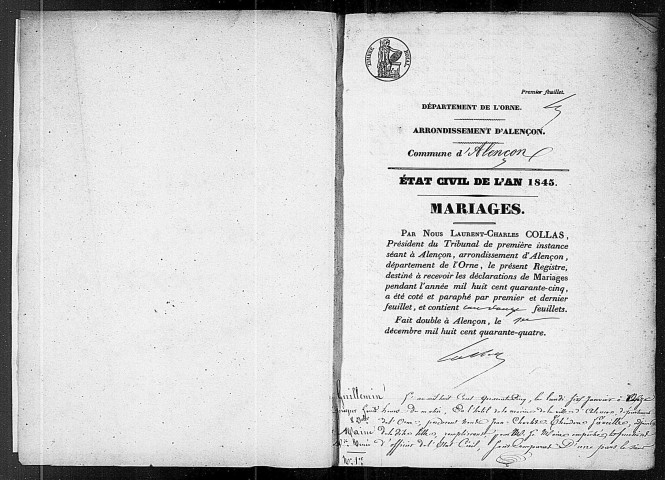 TIMBRE ROYAL
Premier feuillet.
DÉPARTEMENT DE L'ORNE.
ARRONDISSEMENT D'ALENÇON.
Commune d'Alençon
ÉTAT CIVIL DE L'AN 1845.
MARIAGES.
PAR NOUS LAURENT-CHARLES COLLAS,
Président du Tribunal de première instance
séant à Alençon, arrondissement d'Alençon,
département de l'Orne, le présent Registre,
destiné à recevoir les déclarations de Mariages
pendant l'année mil huit cent quarante-cinq,
a été coté et paraphé par premier et dernier
feuillet, et contient feuillets.
Fait double à Alençon, le
décembre mil huit cent quarante-quatre.
Collas
Guillemin mil huit cent quarante cinq, le lundi six janvier à
du matin, De l'hôtel de la mairie de la ville d'Alençon, département
de l'Orne, pardevant nous Jean Charles
Maire de la dite ville, remplissant
d'officier de l'État Civil, sont comparus D'une part le Sieur
N.° 1.er